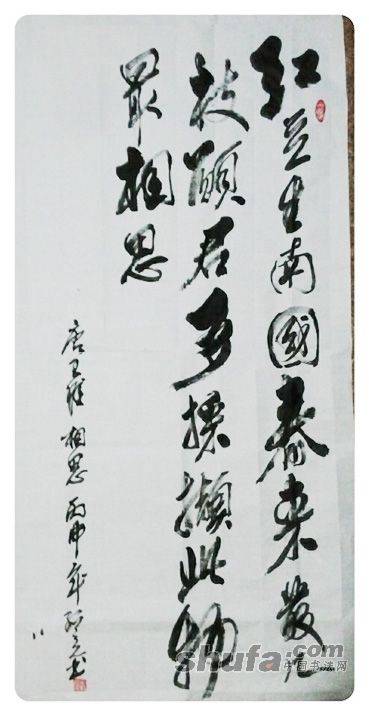 红豆生南國春来發几
枝願君多採擷此物
最相思
唐王维 相思 丙申年 书
shufa.com
中国书法网